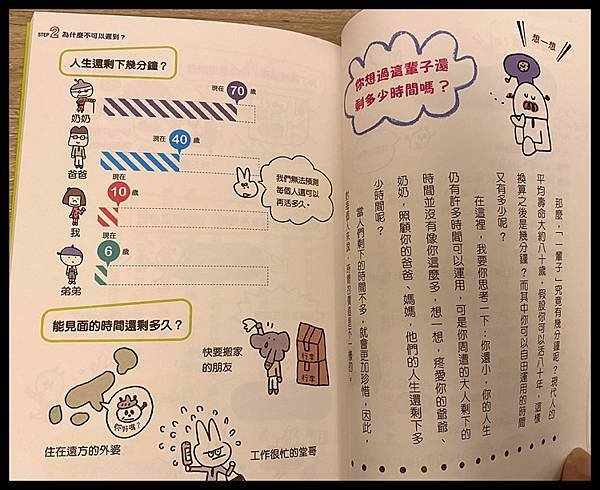 STEP 2 為什麼不可以遲到？
人生還剩下幾分鐘？
現在 70 歲
奶奶
現在 40 歲
爸爸
現在
10 歲
我
現在
6 歲
弟弟
我們無法預測
每個人還可以
再活多久。
能見面的時間還剩多久？
快要搬家
的朋友
行李
行李
你好嗎？
住在遠方的外婆
工作很忙的堂哥
想一想
你想過這輩子還
剩多少時間嗎？
那麼，「一輩子」究竟有幾分鐘呢？現代人的
平均壽命大約八十歲，假設你可以活八十年，這樣
換算之後是幾分鐘？而其中你可以自由運用的時間
又有多少呢？
在這裡，我要你思考一下：你還小，你的人生
仍有許多時間可以運用，可是你周遭的大人剩下的
時間並沒有像你這麼多，想一想，疼愛你的爺爺、
奶奶，照顧你的爸爸、媽媽，他們的人生還剩下多
少時間呢？
當人們剩下的時間不多，就會更加珍惜，因此，